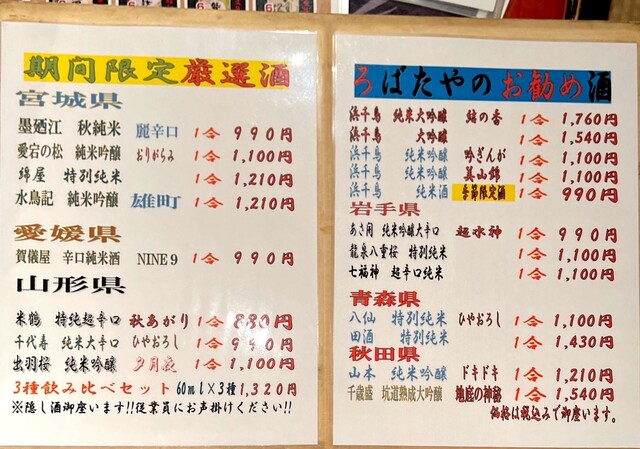 期間限定厳選酒
宮城県
墨廼江 秋純米 麗辛口 1合 990円
愛宕の松 純米吟醸 おりがらみ 1合 1,100円
綿屋 特別純米 1合 1,210円
水鳥記 純米吟醸 雄町 1合 1,210円
愛媛県
賀儀屋 辛口純米酒 NINE9 1合 990円
山形県
米鶴 特純超辛口 秋あがり 1合 880円
千代寿 純米大辛口 ひやおろし 1合 990円
出羽桜 純米吟醸 夕月夜 1合 1,100円
3種飲み比べセット 60ml×3種1,320円
※隠し酒御座います!!従業員にお声掛けください!!
ろばたやのお勧め酒
浜千鳥 純米大吟醸 結の香 1合 1,760円
浜千鳥 大吟醸 1合 1,540円
浜千鳥 純米吟醸 吟ぎんが 1合 1,100円
浜千鳥 純米吟醸 美山錦 1合 1,100円
浜千鳥 純米酒 季節限定酒 1合 990円
岩手県
あさ開 純米吟醸大辛口 超水神 1合 990円
龍泉八重桜 特別純米 1合 1,100円
七福神 超辛口純米 1合 1,100円
青森県
八仙 特別純米 ひやおろし 1合 1,100円
田酒 特別純米 1合 1,430円
秋田県
山本 純米吟醸 ドキドキ 1合 1,210円
千歳盛 坑道熟成大吟醸 地底の神秘 1合 1,540円
価格は税込みで御座います。